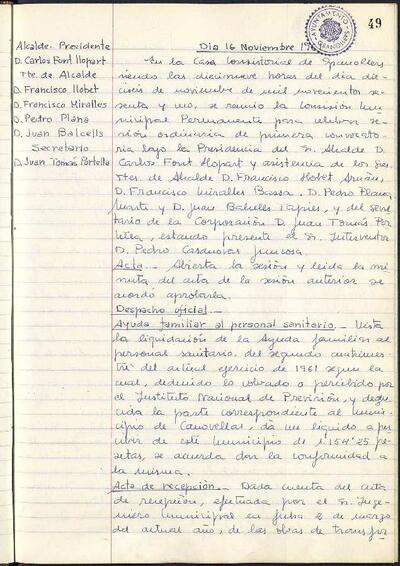 49
AYUNTAMIENTO
GRANOLLERS
Alcalde-Presidente
D. Carlos Font Llopart
Tte. de Alcalde
D. Francisco Llobet
D. Francisco Miralles
D. Pedro Plana
D. Juan Balcells
Secretario
D. Juan Tomás Portella
Dia 16 Noviembre 19
En la Casa Consistorial de Granollers,
siendo las diecinueve horas del dia die-
ciseis de noviembre de mil novecientos se-
senta y uno, se reunio la Comisión Mu-
nicipal Permanente para celebrar se-
sión ordinaria de primera convocato-
ria bajo la Presidencia del Sr. Alcalde D.
Carlos Font Llopart y asistencia de los Sres.
Ttes. de Alcalde D. Francisco Llobet Arnán,
D. Francisco Miralles Bassa, D. Pedro Plana
y D. Juan Balcells Tapies, y del secre-
tario de la Corporación D. Juan Tomás Por-
tella, estando presente el Sr. Interventor
D. Pedro Casanovas Juncosa.
Acta.- Abierta la sesión y leida la mi-
nuta del acta de la sesión anterior se
acordó aprobarla.
Despacho oficial.-
Ayuda familiar al personal sanitario.- Vista
la liquidación de la Ayuda familiar al
personal sanitario, del segundo cuatrimes-
tre del actual ejercicio de 1961 segun la
cual, deducido lo cobrado o percibido por
el Instituto Nacional de Previsión, y dedu-
cida la parte correspondiente al muni-
cipio de Canovellas, da un liquido a per-
cibir de este municipio de 1.154'25 pe-
setas, se acuerda dar la conformidad a
la misma.
Acta de recepción.- Dada cuenta del acta
de recepción, efectuada por el Sr. Inge-
niero municipal en fecha 2 de marzo
del actual año, de las obras de transfor